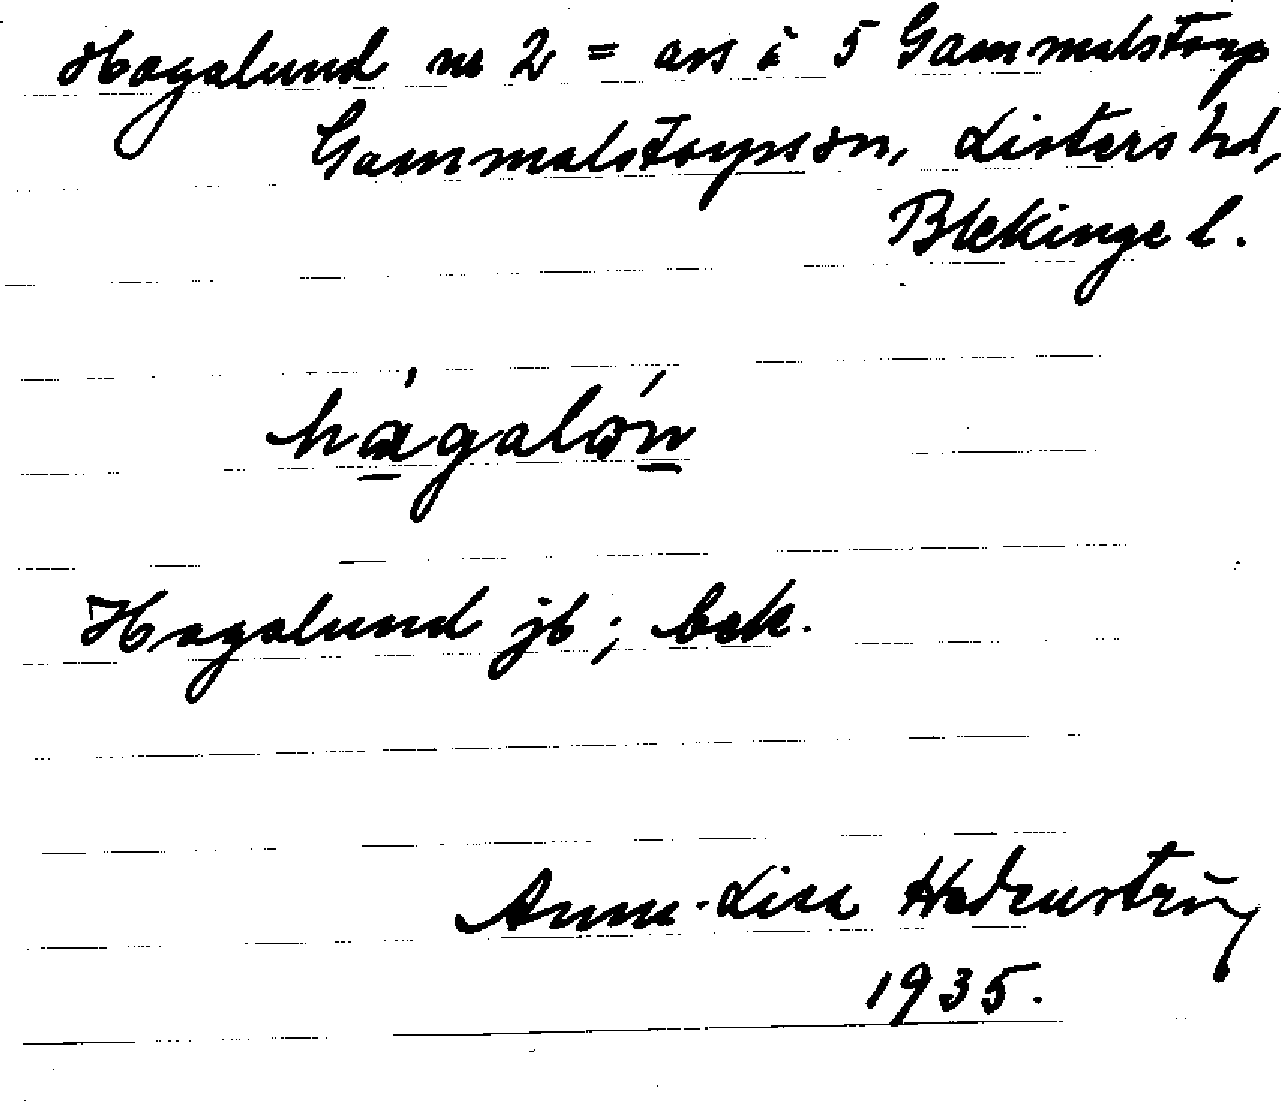 Hagalund nr 2 = avs i 5 Gammalstorp
Gammalstorps sn, Listers hd,
Blekinge l.
hágalón
Hagalund jb; bek.
Anna-Lisa
1935.